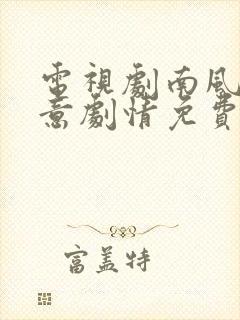 電視劇南風
意劇情免費
富蓋特